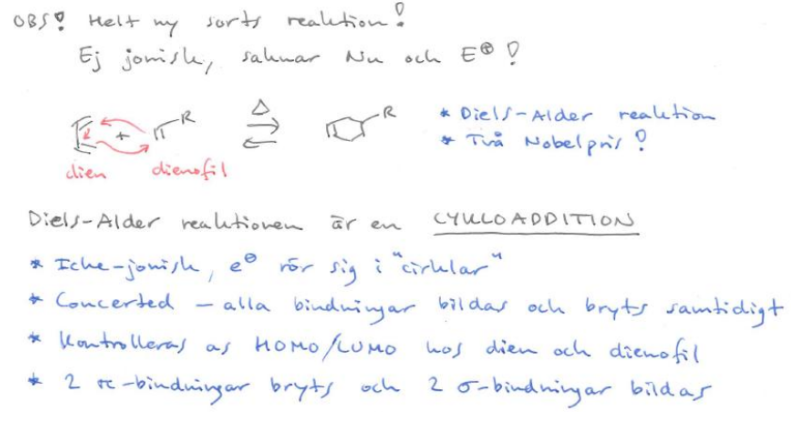 OBS! Helt ny sorts reaktion!
Ej jonisk, saknar Nu och E⊕!
R
+
Δ
⇌
R
* Diels-Alder reaktion
* Två Nobelpris!
dien
dienofil
Diels-Alder reaktionen är en CYKLOADDITION
* Icke-jonisk, e⊖ rör sig i "cirklar"
* Concerted – alla bindningar bildas och bryts samtidigt
* Kontrolleras as HOMO/LUMO hos dien och dienofil
* 2 π-bindningar bryts och 2 σ-bindningar bildas